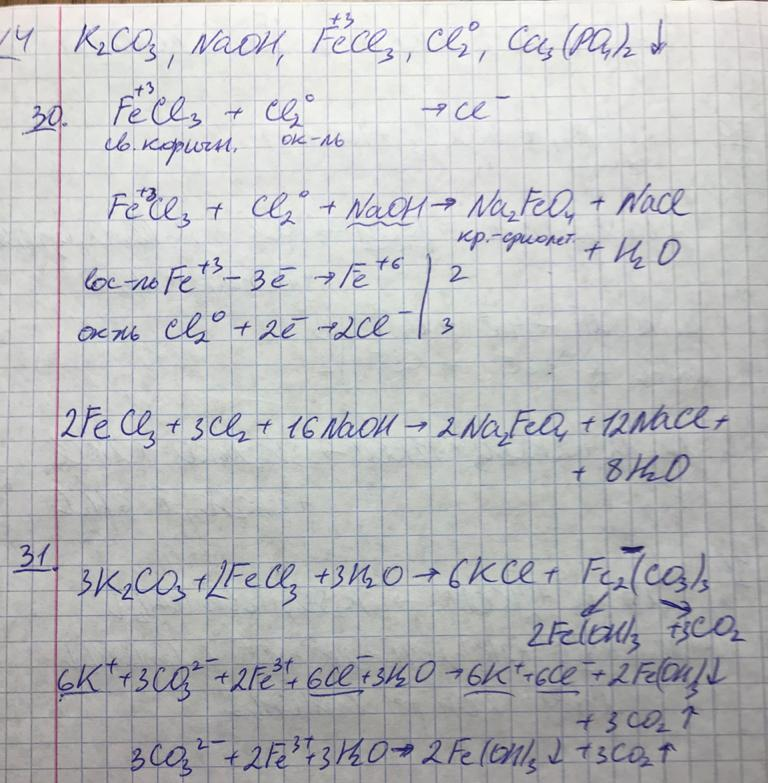 14 K₂CO₃, NaOH, Fe⁺³Cl₃, Cl₂⁰, Ca₃(PO₄)₂↓
30. Fe⁺³Cl₃ + Cl₂⁰ → Cl⁻
св. коричн. ок-ль
Fe⁺³Cl₃ + Cl₂⁰ + NaOH → Na₂FeO₄ + NaCl
кр.-фиолет. + H₂O
вос-ль Fe⁺³ − 3ē → Fe⁺⁶ | 2
ок-ль Cl₂⁰ + 2ē → 2Cl⁻ | 3
2FeCl₃ + 3Cl₂ + 16NaOH → 2Na₂FeO₄ + 12NaCl +
+ 8H₂O
31. 3K₂CO₃ + 2FeCl₃ + 3H₂O → 6KCl + Fe₂(CO₃)₃
2Fe(OH)₃ +3CO₂
6K⁺ + 3CO₃²⁻ + 2Fe³⁺ + 6Cl⁻ + 3H₂O → 6K⁺ + 6Cl⁻ + 2Fe(OH)₃↓
+ 3CO₂↑
3CO₃²⁻ + 2Fe³⁺ + 3H₂O → 2Fe(OH)₃↓ + 3CO₂↑